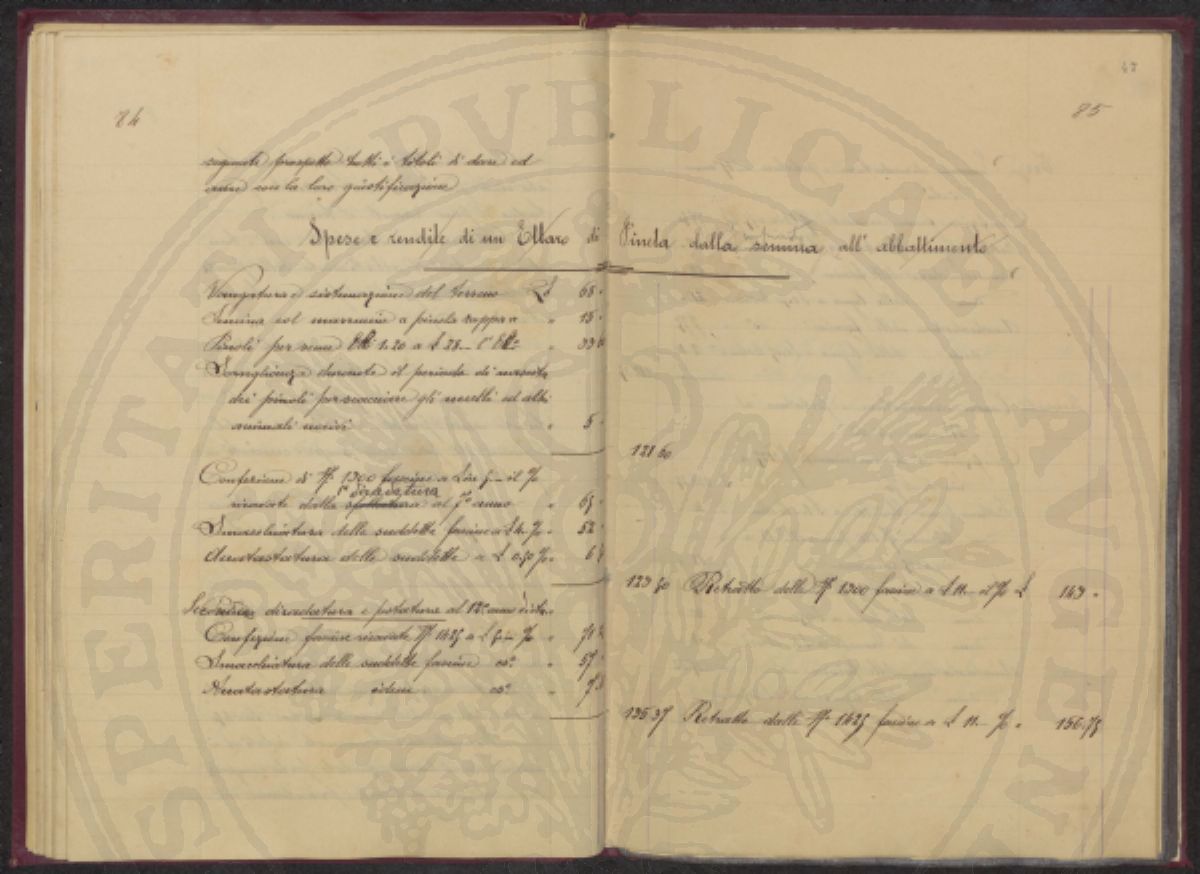 84
47
85
seguente prospetto tutti i totali di dare ed
avere con la loro giustificazione
Spese e rendite di un Ettaro di Pineta dalla semina all' abbattimento
Vangatura e sistemazione del terreno £ 68 "
Semina col a pinoli " 15 "
Pinoli per seme Ett. 1.20 a £ 28 — l' Ett. " 33 60
Sorveglianza durante il periodo di nascita
dei pinoli per scacciare gli uccelli ed altri
animali nocivi " 5 "
121 60
Confezione di N. 1300 fascine a Lire 5 — il %
ricavate dalla 1ª diradatura al 7° anno " 65 "
Smacchiatura delle suddette fascine a £ 4. % " 52 "
Accatastatura delle suddette a £ 0.50 % " 6 50
123 50 Retratto delle N. 1300 fascine a £ 11 — il % £ 143 "
Seconda diradatura e potatura al 12° anno
Confezione fascine ricavate N. 1425 a £ 5 — % " 71 25
Smacchiatura delle suddette fascine " 57 "
Accatastatura idem " 7 12
135.37 Retratto dalle N. 1425 fascine a £ 11 — % " 156.75
ASPERITATI PUBLICAE AUGEN